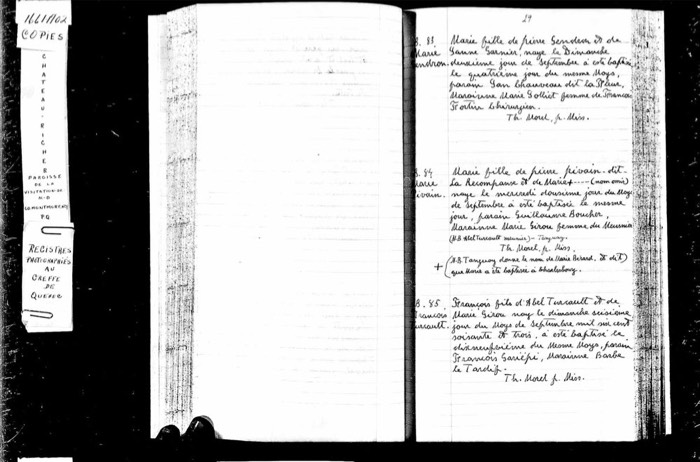 ILL1702
COPIES
CHATEAU-RICHER
PAROISSE
DE LA
VISITATION DE
N-D
COMONTMORENCY
P.Q
REGISTRES
PHOTOGRAPHIÉS
AU
GREFFE
DE
QUEBEC
29
B. 83 Marie fille de pierre Gendron et de
Marie Janne Garnier, naye le Dimanche
endron. deuxieme jour de Septembre a esté baptisé
le quatrieme jour du mesme Moys,
parain Jan Chauveau dit la Fleur,
Marainne Marie Golliet femme de Francois
Fortin Chirurgien.
Th. Morel, p. Miss.
B. 84 Marie fille de pierre pivain-dit-
Marie La Recompanse et de Marie + ---- (nom omis)
ivain. naye le mercredi dousieme jour du Moys
de Septembre a esté baptisée le mesme
jour, parain Guillaume Boucher,
Marainne Marie Girou femme du Meusnier
(N.B. Abel Turcault meunier) - Tanguay.
Th. Morel, p. Miss.
+ (N.B Tanguay donne le nom de Marie Berard, et dit
que Marie a été baptisée à Charlesbourg.
B. 85. François fils d'Abel Turcault et de
rancois Marie Girou nay le dimanche seisieme
urcault. jour du Moys de Septembre mil six cent
soisante et trois, a esté baptisé le
dixneufvieme du Mesme Moys, parain
Francois Gariépi, Marainne Barbe
le Tardif.
Th. Morel p. Miss.